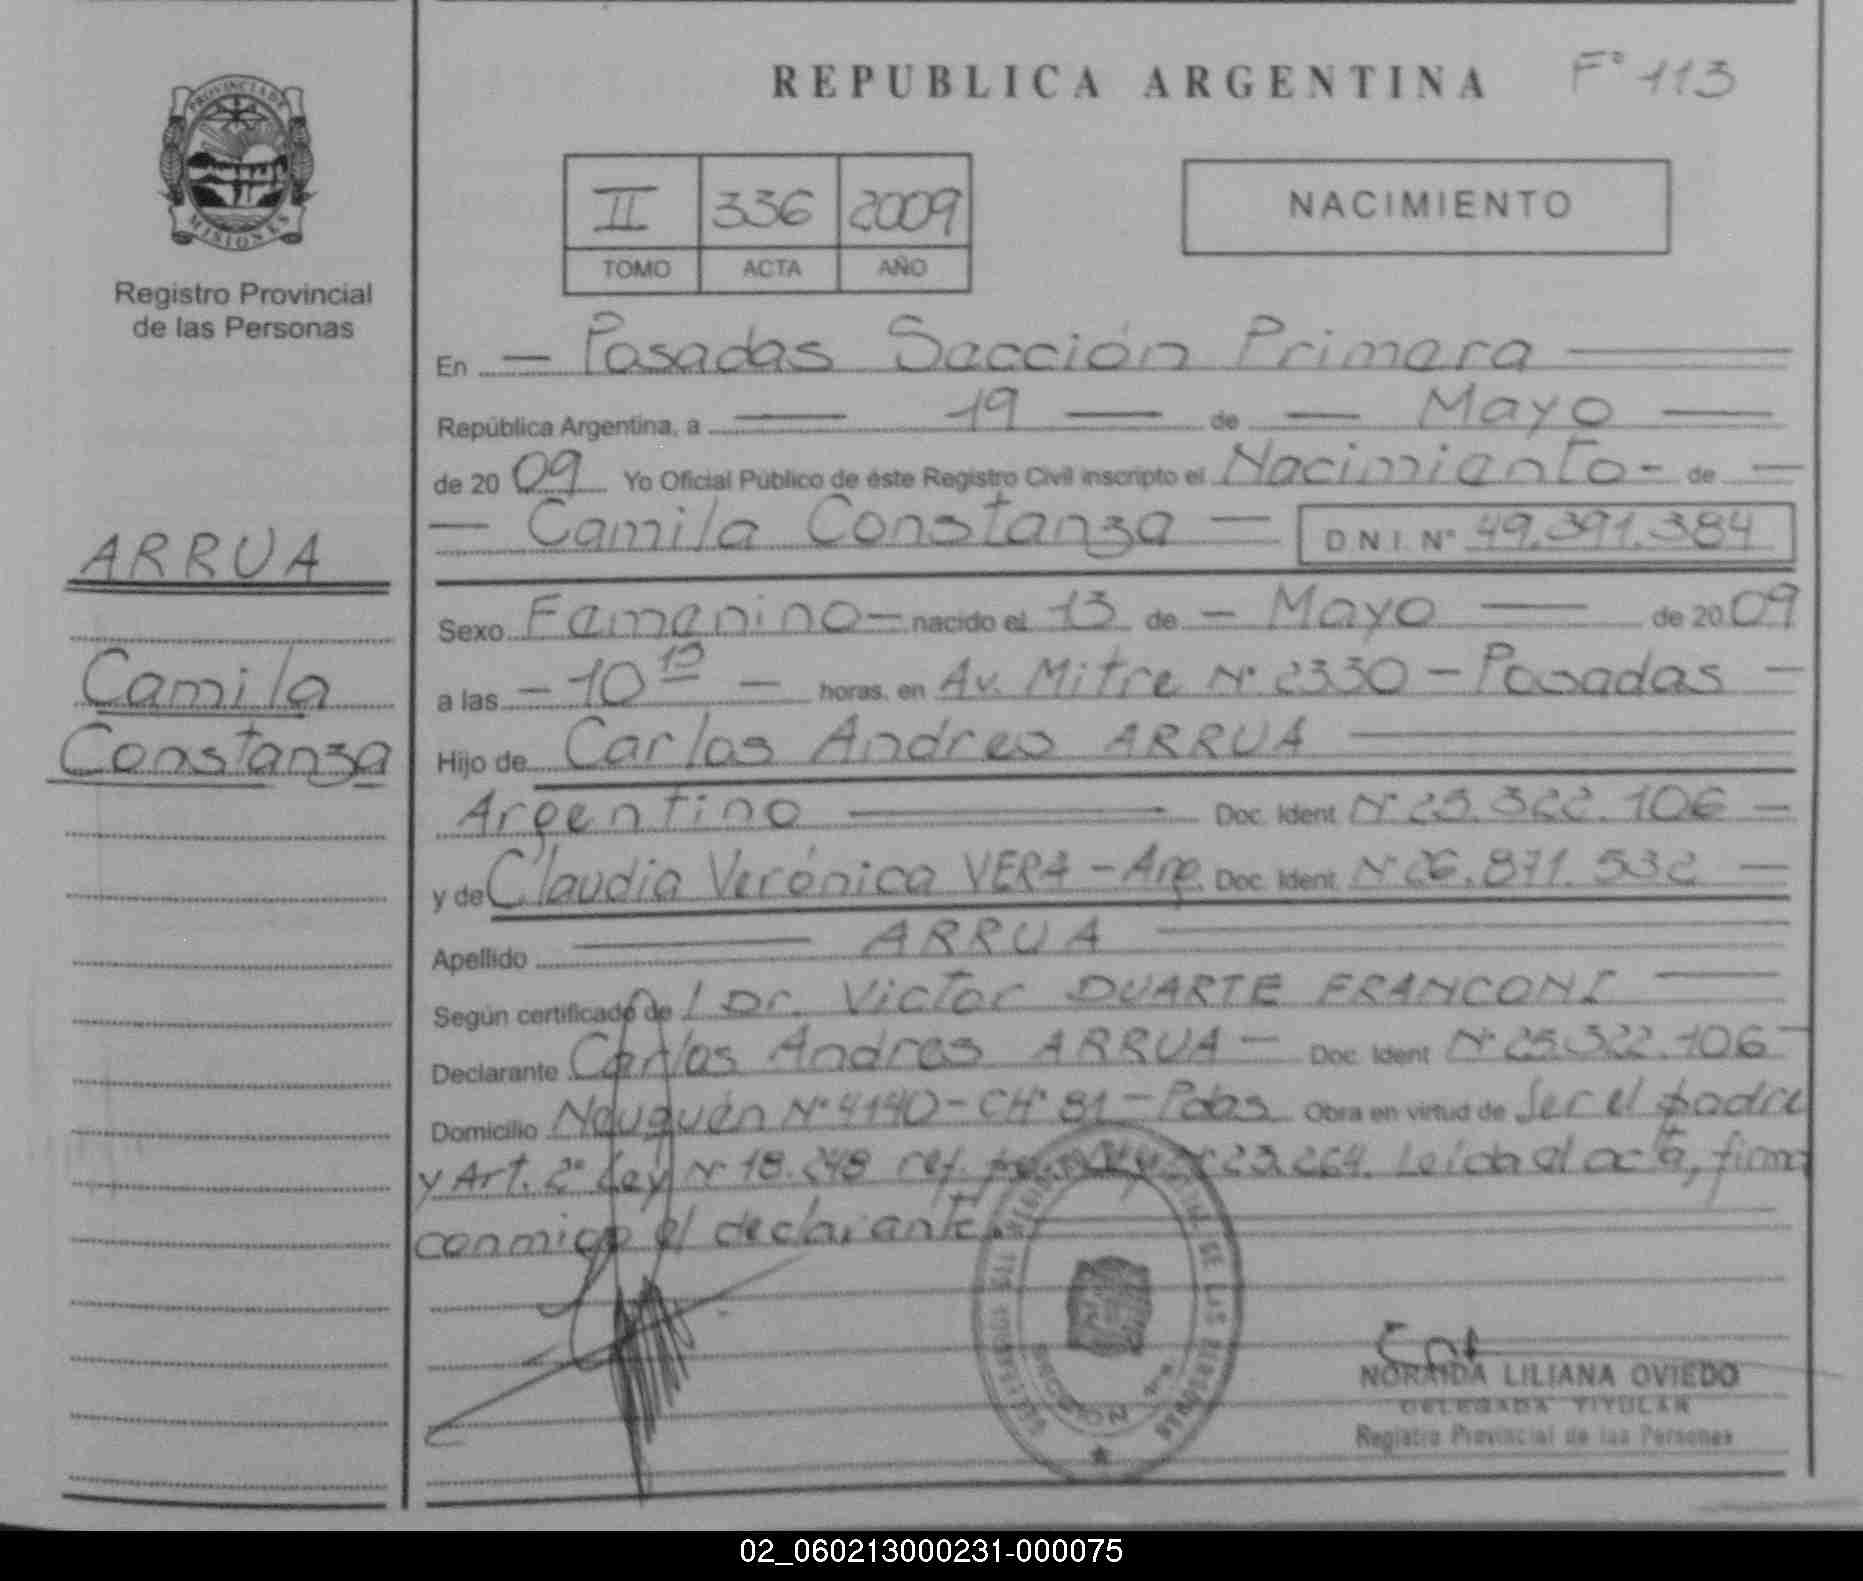 REPUBLICA ARGENTINA F° 113
PROVINCIA DE
MISIONES
Registro Provincial
de las Personas
II 336 2009
TOMO ACTA AÑO
NACIMIENTO
En — Posadas Sección Primera
República Argentina, a 19 de Mayo
de 20 09 Yo Oficial Público de éste Registro Civil inscripto el Nacimiento - de —
— Camila Constanza — D.N.I. N° 49.391.384
ARRUA
Camila
Constanza
Sexo Femenino — nacido el 13 de — Mayo — de 20 09
a las — 10 15 — horas, en Av. Mitre N° 2330 — Posadas —
Hijo de Carlos Andres ARRUA
Argentino Doc. Ident N° 25.322.106 —
y de Claudia Verónica VERA - Arg. Doc. Ident. N° 26.871.532 —
Apellido ARRUA
Según certificado de l Dr. Victor DUARTE FRANCONI
Declarante Carlos Andres ARRUA — Doc. Ident N° 25.322.106 —
Domicilio Neuquén N° 4140 - CH° 81 - Pdas Obra en virtud de Ser el padre
y Art. 2° Ley N° 18.248 ref. por Ley N° 23.264. Leida el acta, firma
conmigo el declarante.
NORAIDA LILIANA OVIEDO
DELEGADA TITULAR
Registro Provincial de las Personas
02_060213000231-000075